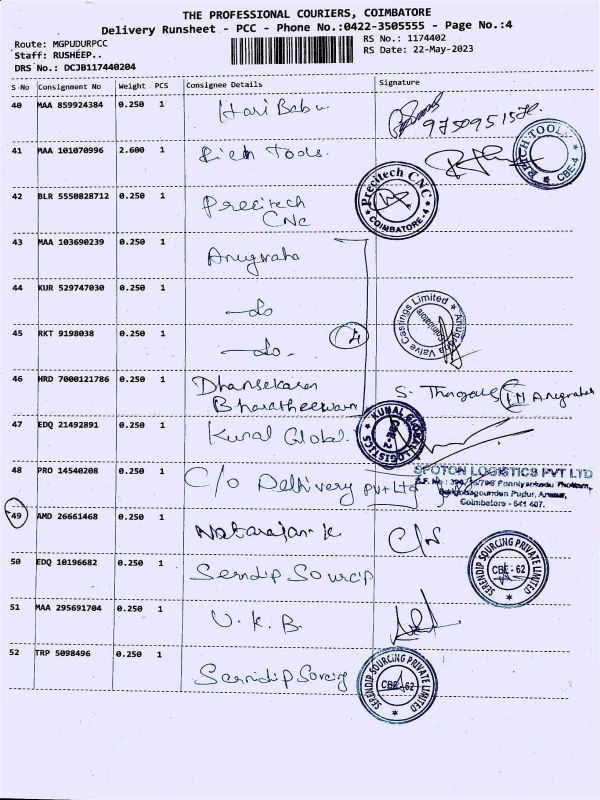 THE PROFESSIONAL COURIERS, COIMBATORE
Delivery Runsheet - PCC - Phone No.:0422-3505555 - Page No.:4
Route: MGPUDURPCC
RS No.: 1174402
Staff: RUSHEEP..
RS Date: 22-May-2023
DRS No.: DCJB117440204
S No Consignment No Weight PCS Consignee Details Signature
40 MAA 859924384 0.250 1 Hari Babu
41 MAA 101070996 2.600 1 Rich Tools.
RICH TOOLS CBE-4
42 BLR 5550828712 0.250 1 Precitech CNC
Precitech CNC COIMBATORE-4
43 MAA 103690239 0.250 1 Anugraha
44 KUR 529747030 0.250 1 -do
Anugraha Valve Castings Limited Coimbatore
45 RKT 9198038 0.250 1 -do.
4
46 HRD 7000121786 0.250 1 Dhansekaran Bharatheeswaran
47 EDQ 21492891 0.250 1 Kunal Global.
KUNAL GLOBAL LOGISTICS
48 PRO 14540208 0.250 1 C/o Delhivery Pvt Ltd
SPOTON LOGISTICS PVT LTD
Coimbatore - 641 407.
49 AMD 26661468 0.250 1 Natarajan-K
50 EDQ 10196682 0.250 1 Serndip Sourcip
SERENDIP SOURCING PRIVATE LIMITED CBE-62
51 MAA 295691704 0.250 1 U. K. B.
52 TRP 5098496 0.250 1 Serndip Sorcing
SERENDIP SOURCING PRIVATE LIMITED CBE-62